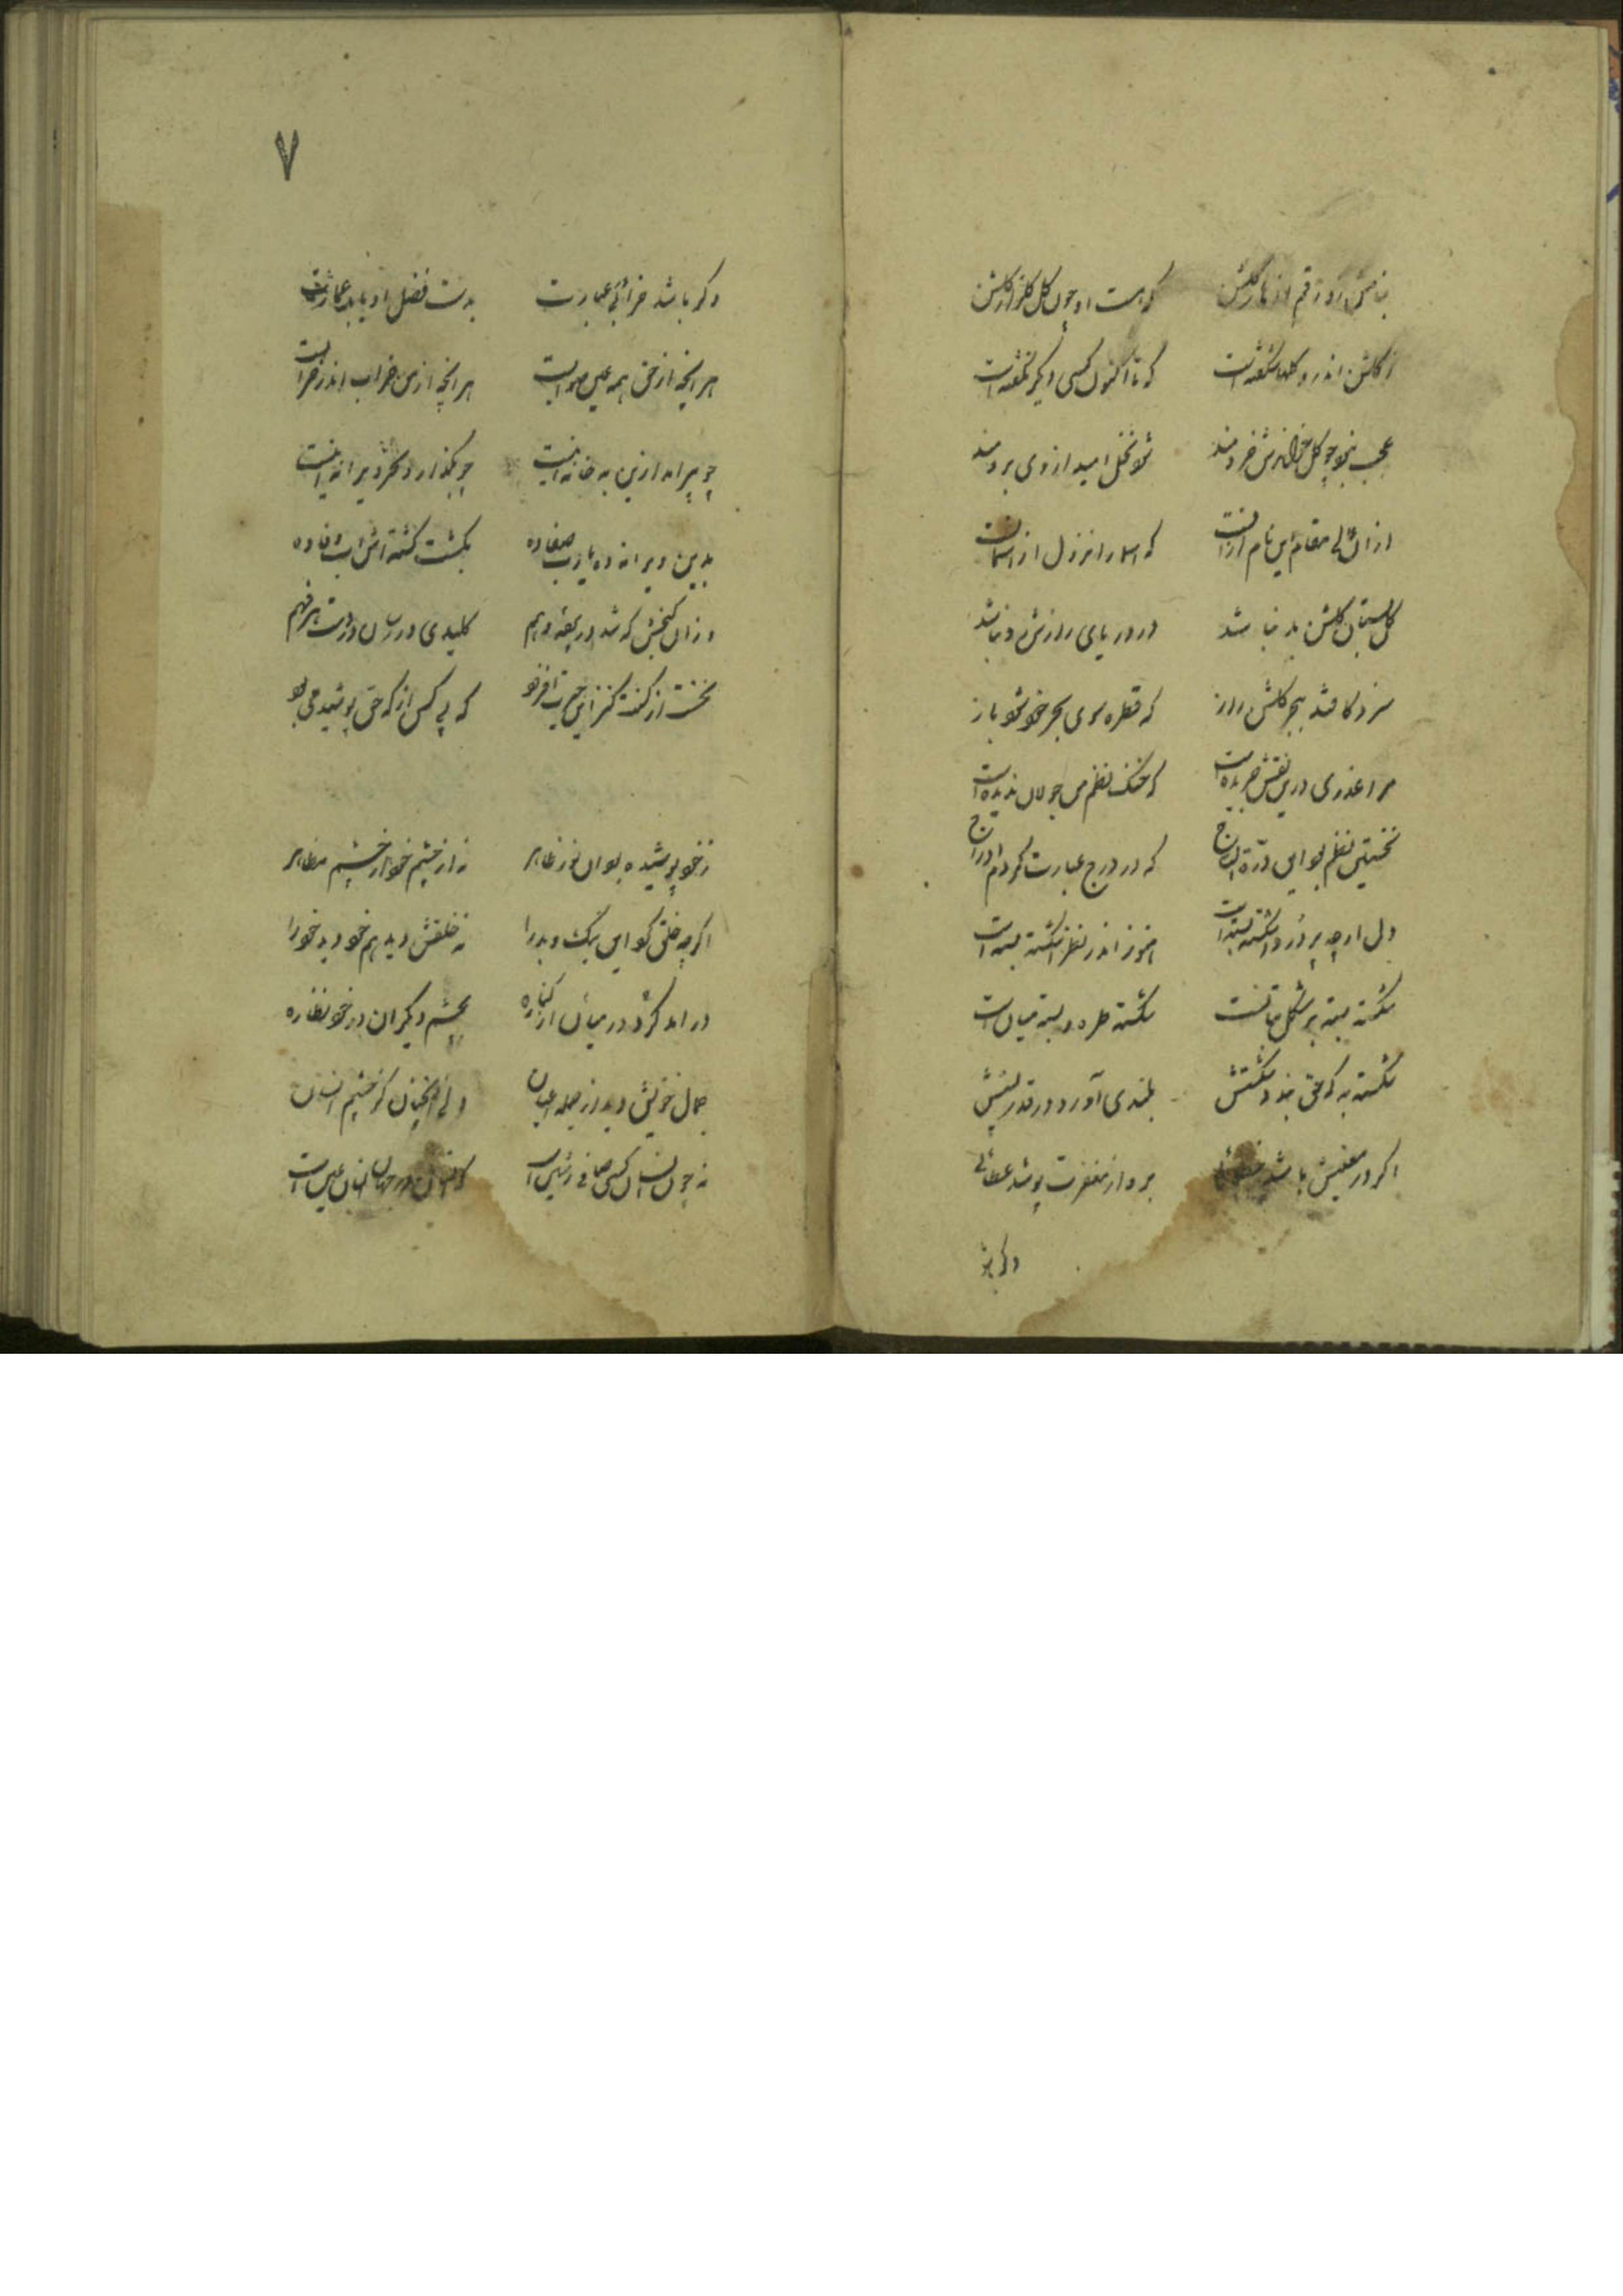 که هست او چون گل گلزار گلشن
ز گلشن اندرو گلها شکفته است که تا اکنون کسی دیگر نگفته است
عجب نبود چو گل خردمند شود نخل امید از وی برومند
از آن مقام این نام که اسما را نزول از آسمان است
گلستان گلشن بد نباشد در و دریای رازش رد نباشد
سزد کافتد ببحر گلشن راز که قطره سوی بحر خود شود باز
مرا عذری درین نقش جریده است که خنگ نظم من جولان ندیده است
نخستین نظم بود این درة التاج که در درج عبارت کردم ادراج
ولی ارچه پر در و شکسته بسته است هنوز اندر نظر شکسته بسته است
شکسته بسته بر شکل بتانست شکسته طره و بسته میان است
شکسته به که حق بخشد شکستش بلندی آورد در قدر پستش
اگر در معنیش باشد خطائی برو از مغفرت پوشد عطائی
وگر باشد
۷
وگر باشد خرابی عبارت بدست فضل او یابد عمارت
هر آنچه از حق همه عین صوابست هر آنچه از من خراب اندر خرابست
چو پیر آمد ازین به خانه نیست چو بگذارد دگر ویرانه نیست
بدین ویرانه ده یارب صفا ده بکشت کشته اش آب وفا ده
وزان گنجش که شد در بقعه وهم کلیدی در رسان در دست هر فهم
نخست از کنت کنزا این حجاب که پی کس از که حق پوشیده می بود
ز خود پوشیده بود آن نور ظاهر نه از چشم خود از چشم مظاهر
اگرچه خلق گو این نیک و بد را نه خلقش دید هم خود دید خود را
در آمد گرد در میان از کناره بچشم دیگران در خود نظاره
جمال خویش دید از جمله اعیان ولی نه آنچنان کز چشم انسان
نه چون انسان کسی صافی زشین است که انسان در جهان انسان عین است